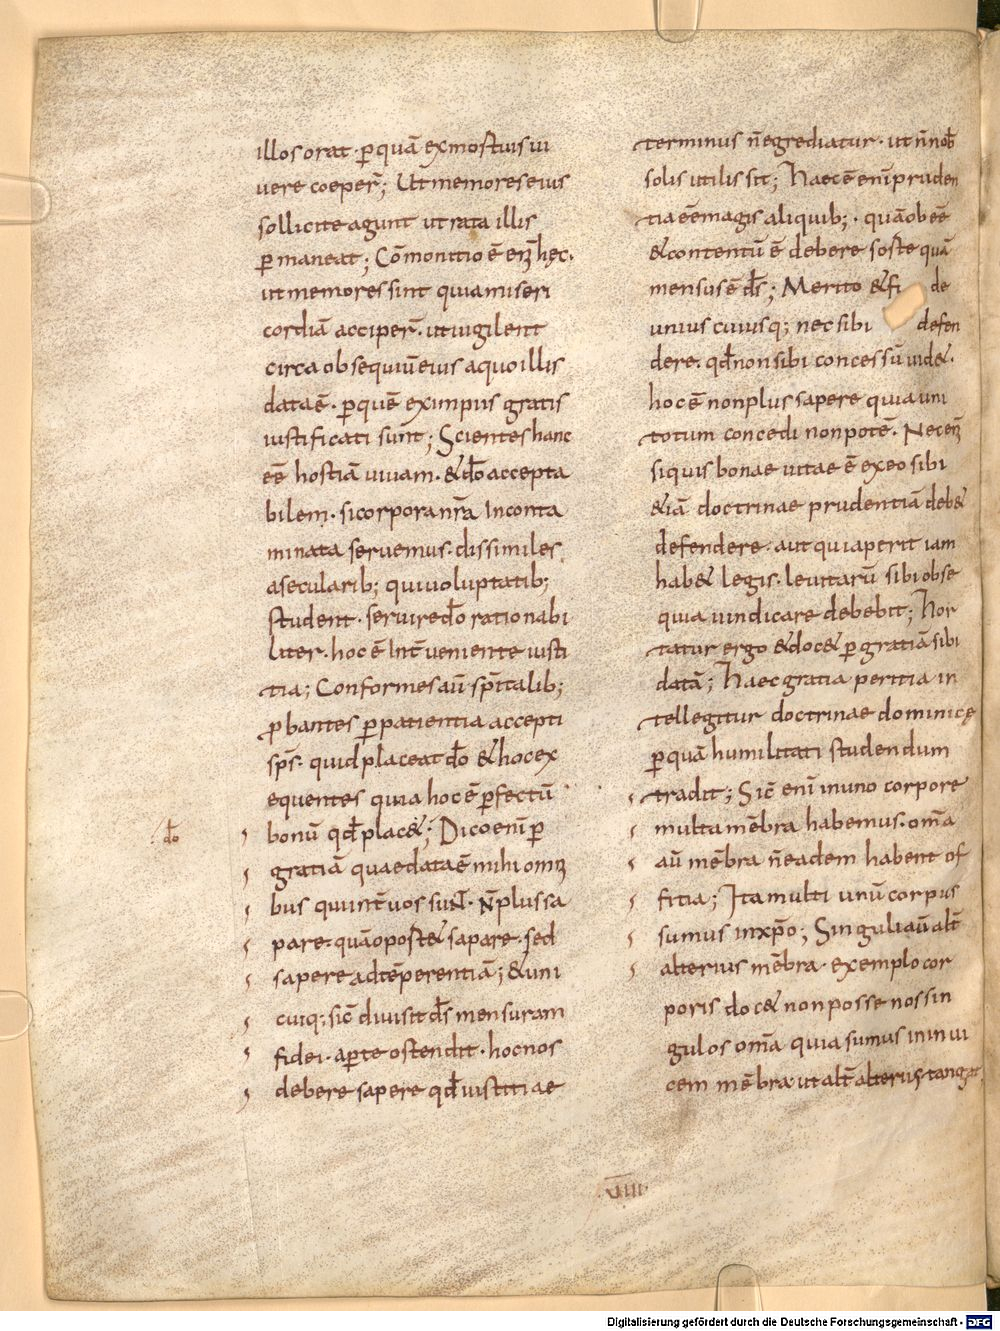 illos orat · ꝑ quā ex mortuis ui
uere coeper̄; Ut memores eius
sollicite agunt ut rata illis
ꝑmaneat; Cōmonitio ē eni҃ hęc ·
ut memores sint quia miseri
cordiā acciper̄ · ut uigilent
circa obsequiū eius a quo illis
data ē · ꝑ quē ex impiis gratis
iustificati sunt; Scientes hanc
eē hostiā uiuam · & dō accepta
bilem · si corpora nr̄a Inconta
minata seruemus · dissimiles
a secularib; qui uoluptatib;
student · seruire dō rationabi
liter · hoc ē Int̄ueniente iusti
tia; Conformes aū sp̄italib;
ꝓbantes ꝑ patientia accepti
sp̄s · quid placeat dō & hoc ex
equentes quia hoc ē ꝑfectū
bonū qd̄ plac&; Dico enī ꝑ
dō
gratiā quae data ē mihi omni
bus qui int̄ uos sunt · N̄ plus sa
pare · quā oport& sapare · sed
sapere ad tēperentiā; & uni
cuiq; sic̄ diuisit d̄s mensuram
fidei · aꝑte ostendit · hoc nos
debere sapere qd̄ iustitiae
terminus n̄ egrediatur · ut n̄ nob̄
solis utilis sit; Haec ē enī pruden
tia eē magis aliquib; · quāob eē
& contentū ē debere sorte quā
mensus ē d̄s; Merito & fi de
unius cuiusq; nec sibi defen
dere · qd̄ non sibi concessū uid& ·
hoc ē non plus sapere quia uni
totum concedi non potē · Nec eni҃
si quis bonae uitae ē ex eo sibi
& iā doctrinae prudentiā deb&
defendere · aut quia perit iam
hab& legis · leuitarū sibi obse
quia uindicare debebit; Hor
tatur ergo & doc& ꝑ gratiā sibi
datā; Haec gratia peritia in
tellegitur doctrinae dominicę
ꝑ quā humilitati studendum
tradit; Sic̄ enī in uno corpore
multa mēbra habemus · om̄a
aū mēbra n̄ eadem habent of
fitia; Ita multi unū corpus
sumus in xp̄o; Singuli aū alt̄
alterius mēbra · exemplo cor
poris doc& non posse nos sin
gulos om̄a quia sumus in inui
cem mēbra ut alt̄ alterius tangat
· VIIII ·
Digitalisierung gefördert durch die Deutsche Forschungsgemeinschaft - DFG